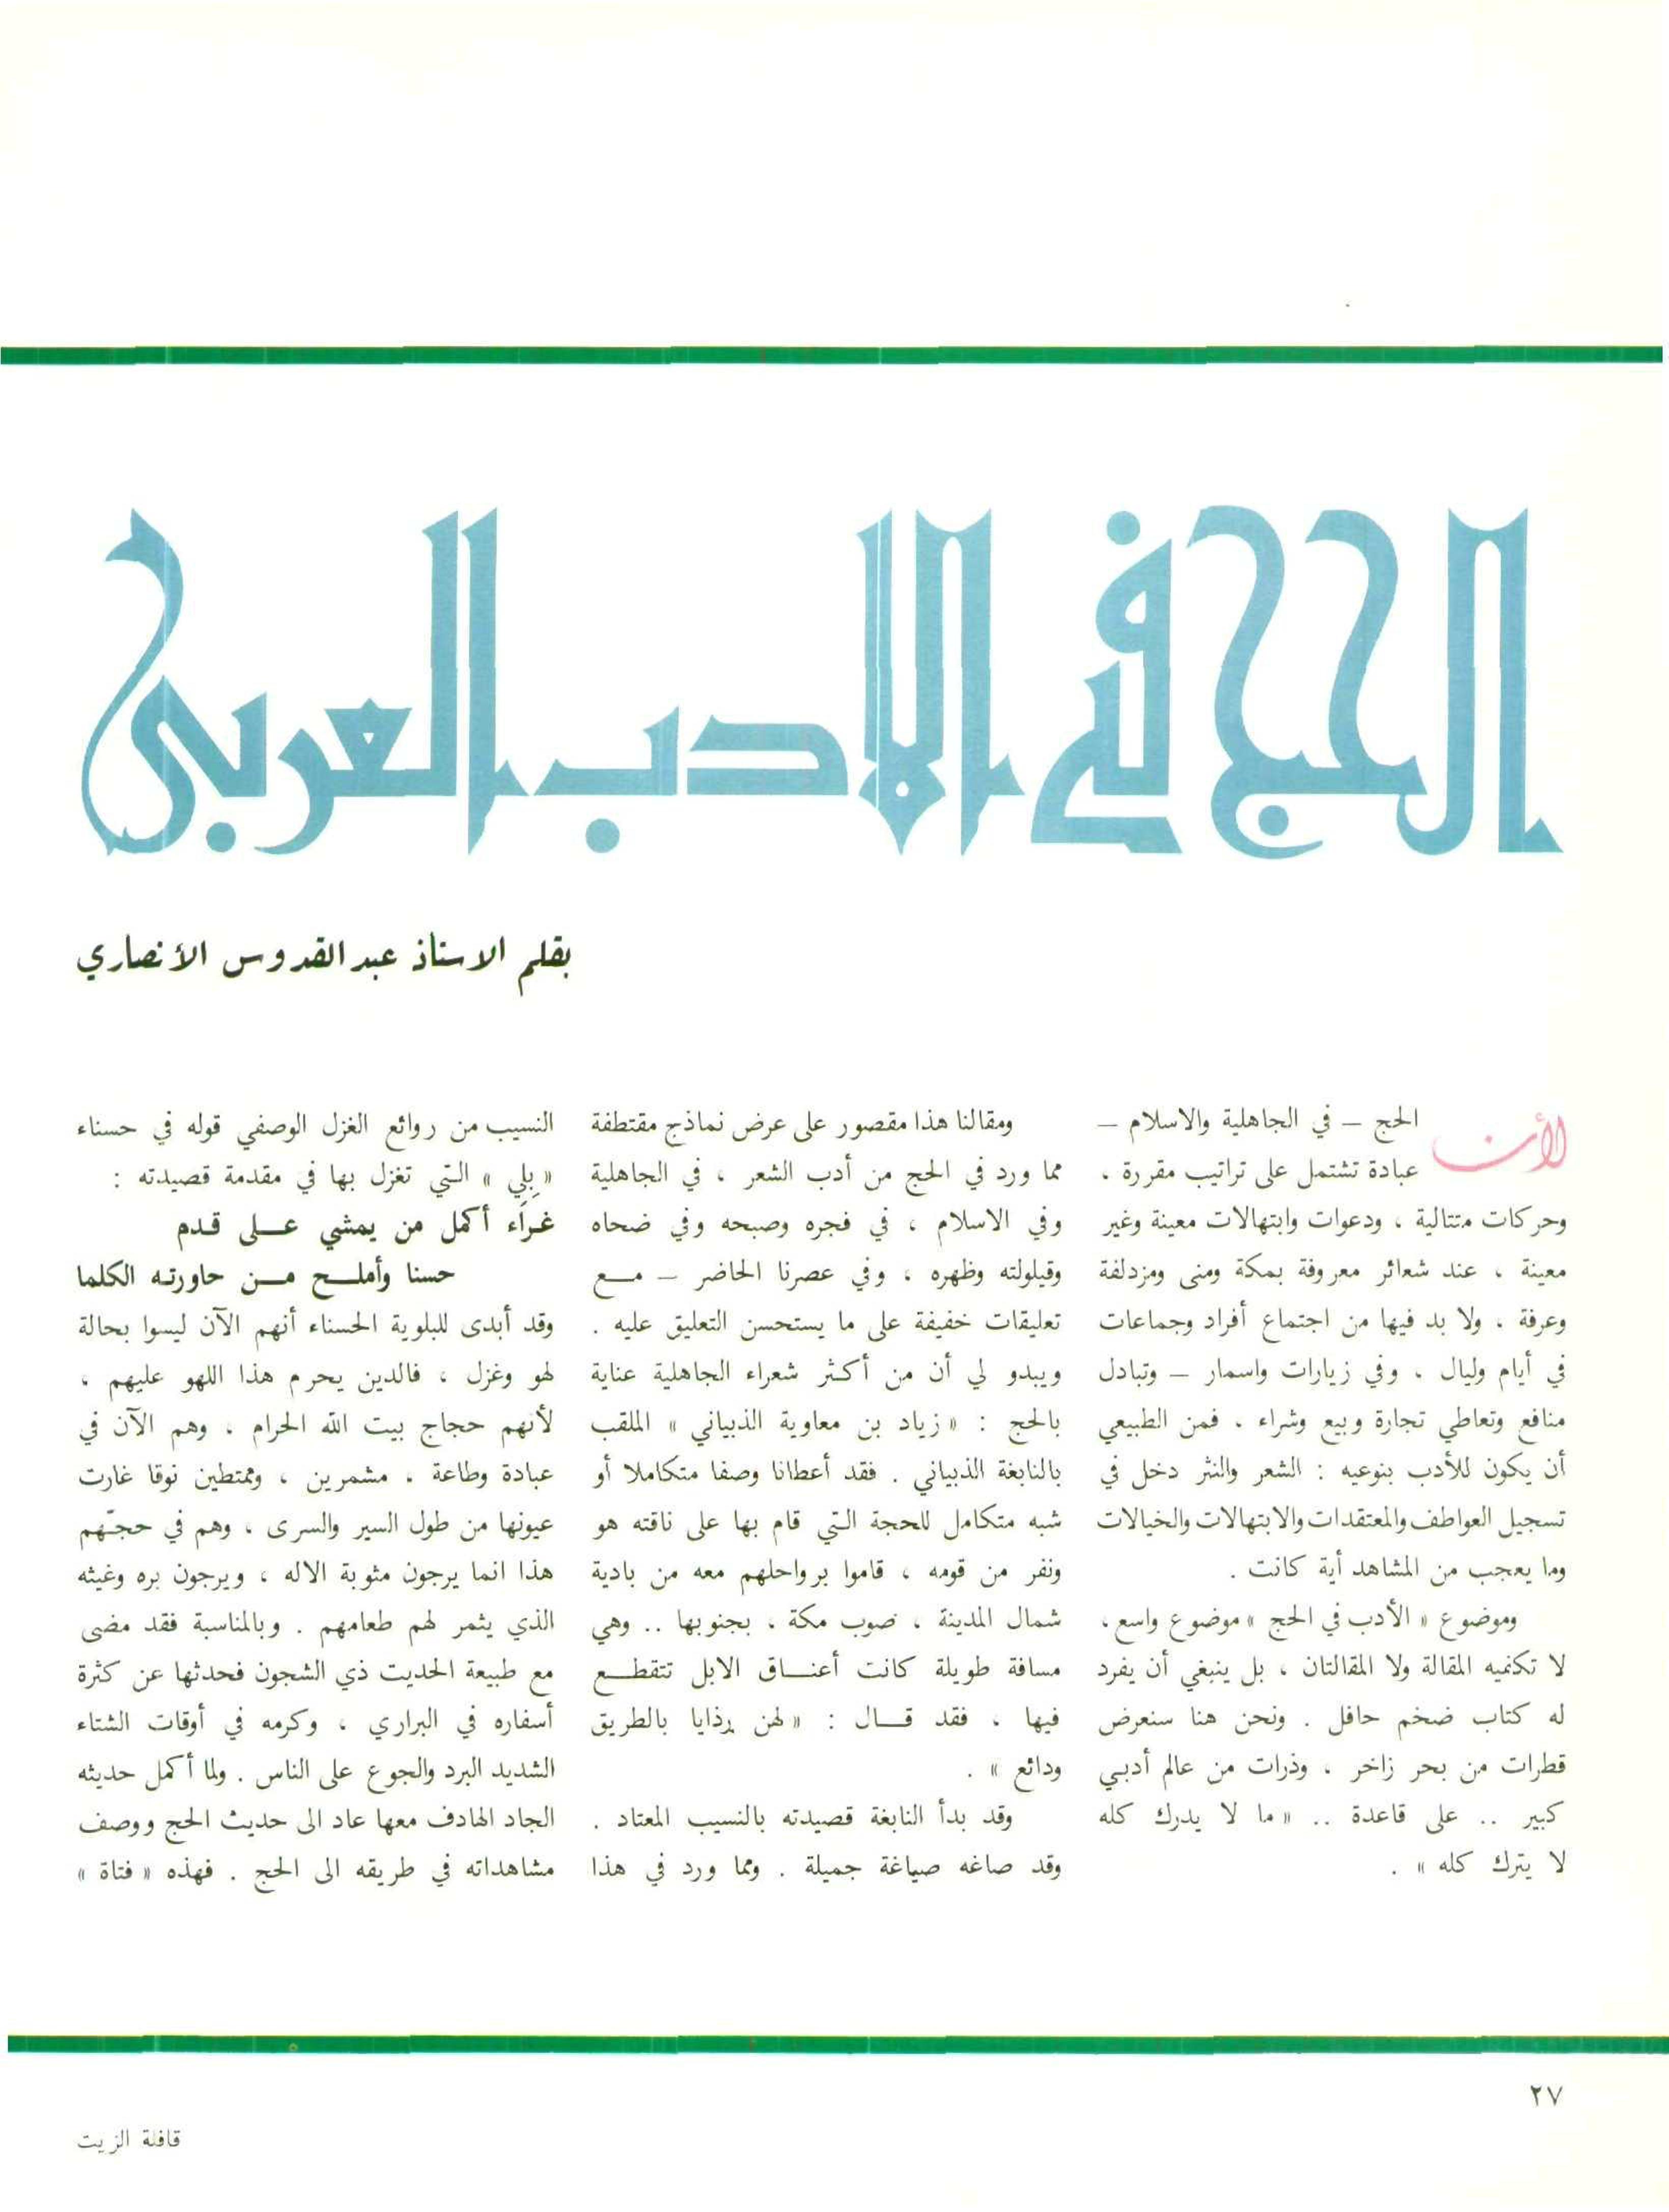 الحج في الادب العربي
بقلم الاستاذ عبد القدوس الأنصاري
لأن الحج – في الجاهلية والاسلام –
عبادة تشتمل على تراتيب مقررة ،
وحركات متتالية ، ودعوات وابتهالات معينة وغير
معينة ، عند شعائر معروفة بمكة ومنى ومزدلفة
وعرفة ، ولا بد فيها من اجتماع أفراد وجماعات
في أيام وليال ، وفي زيارات واسمار – وتبادل
منافع وتعاطي تجارة وبيع وشراء ، فمن الطبيعي
أن يكون للأدب بنوعيه : الشعر والنثر دخل في
تسجيل العواطف والمعتقدات والابتهالات والخيالات
وما يعجب من المشاهد أية كانت .
وموضوع « الأدب في الحج » موضوع واسع ،
لا تكفيه المقالة ولا المقالتان ، بل ينبغي أن يفرد
له كتاب ضخم حافل . ونحن هنا سنعرض
قطرات من بحر زاخر ، وذرات من عالم أدبي
كبير .. على قاعدة .. « ما لا يدرك كله
لا يترك كله » .
ومقالنا هذا مقصور على عرض نماذج مقتطفة
مما ورد في الحج من أدب الشعر ، في الجاهلية
وفي الاسلام ، في فجره وصبحه وفي ضحاه
وقيلولته وظهره ، وفي عصرنا الحاضر – مع
تعليقات خفيفة على ما يستحسن التعليق عليه .
ويبدو لي أن من أكثر شعراء الجاهلية عناية
بالحج : « زياد بن معاوية الذبياني » الملقب
بالنابغة الذبياني . فقد أعطانا وصفا متكاملا أو
شبه متكامل للحجة التي قام بها على ناقته هو
ونفر من قومه ، قاموا برواحلهم معه من بادية
شمال المدينة ، صوب مكة ، بجنوبها .. وهي
مسافة طويلة كانت أعناق الابل تتقطع
فيها ، فقد قال : « لهن رذايا بالطريق
ودائع » .
وقد بدأ النابغة قصيدته بالنسيب المعتاد .
وقد صاغه صياغة جميلة . ومما ورد في هذا
النسيب من روائع الغزل الوصفي قوله في حسناء
« بِلِي » التي تغزل بها في مقدمة قصيدته :
غراء أكمل من يمشي على قدم
حسنا وأملح من حاورته الكلما
وقد أبدى للبلوية الحسناء أنهم الآن ليسوا بحالة
لهو وغزل ، فالدين يحرم هذا اللهو عليهم ،
لأنهم حجاج بيت الله الحرام ، وهم الآن في
عبادة وطاعة . مشمرين ، وممتطين نوقا غارت
عيونها من طول السير والسرى ، وهم في حجّهم
هذا انما يرجون مثوبة الاله ، ويرجون بره وغيثه
الذي يثمر لهم طعامهم . وبالمناسبة فقد مضى
مع طبيعة الحديث ذي الشجون فحدثها عن كثرة
أسفاره في البراري ، وكرمه في أوقات الشتاء
الشديد البرد والجوع على الناس . ولما أكمل حديثه
الجاد الهادف معها عاد الى حديث الحج ووصف
مشاهداته في طريقه الى الحج . فهذه « فتاة »
٢٧
قافلة الزيت